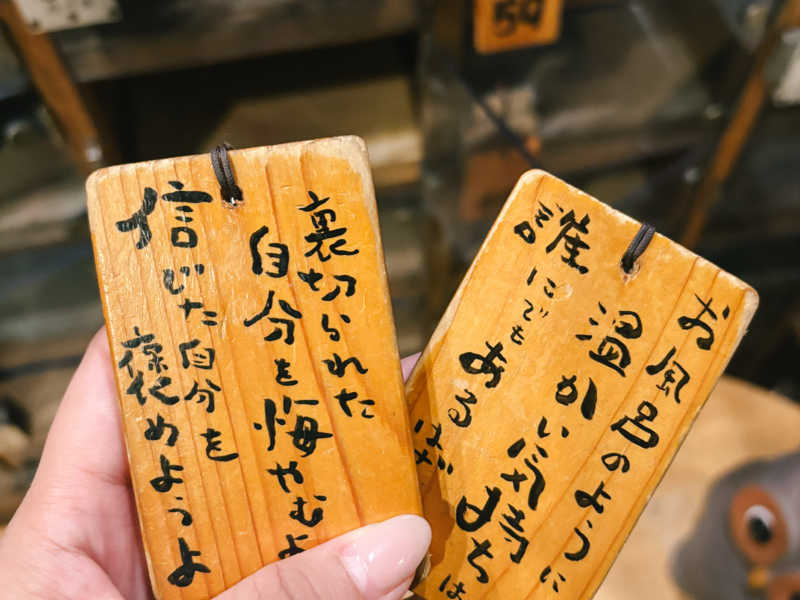 59
裏切られた
自分を悔やむよ
信じた自分を
褒めようよ
お風呂のように
温かい気持ちは
誰にでもあるは